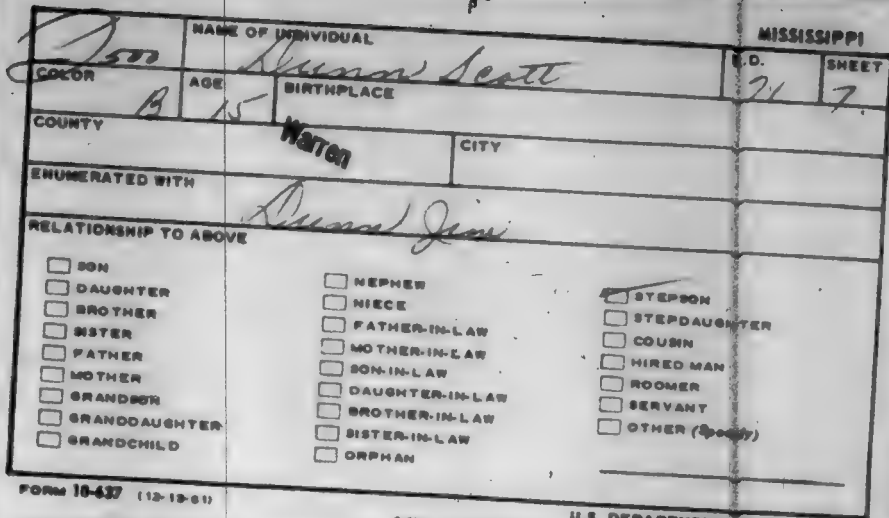 MISSISSIPPI
NAME OF INDIVIDUAL E.D. SHEET
500 Dunn Scott 21 7
COLOR AGE BIRTHPLACE
B 15
COUNTY CITY
Warren
ENUMERATED WITH
Dunn Jim
RELATIONSHIP TO ABOVE
SON
DAUGHTER
BROTHER
SISTER
FATHER
MOTHER
GRANDSON
GRANDDAUGHTER
GRANDCHILD
NEPHEW
NIECE
FATHER-IN-LAW
MOTHER-IN-LAW
SON-IN-LAW
DAUGHTER-IN-LAW
BROTHER-IN-LAW
SISTER-IN-LAW
ORPHAN
STEPSON
STEPDAUGHTER
COUSIN
HIRED MAN
ROOMER
SERVANT
OTHER (Specify)
FORM 10-637 (12-13-61)
U.S.